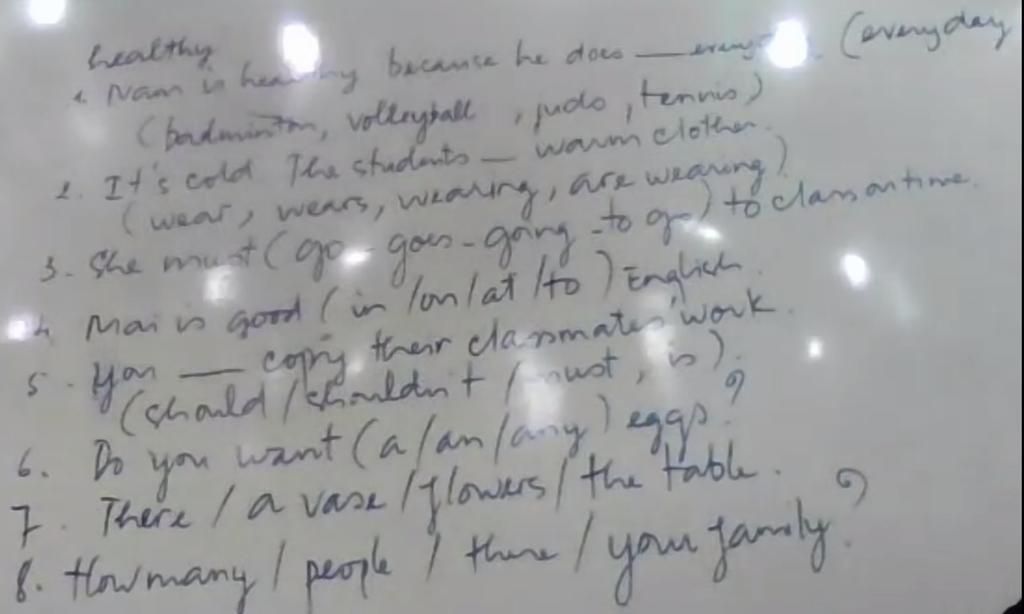 healthy
1. Nam is healthy because he does ___ everyday. (everyday
(badminton, volleyball, judo, tennis)
2. It's cold. The students _ warm clother.
(wear, wears, wearing, are wearing)
3. She must (go - goes - going - to go) to class on time.
4. Mai is good (in / on / at / to) English.
5. You ___ copy their classmates' work.
(should / shouldn't / must, is).
6. Do you want (a / an / any) eggs?
7. There / a vase / flowers / the table.
8. How many / people / there / your family?